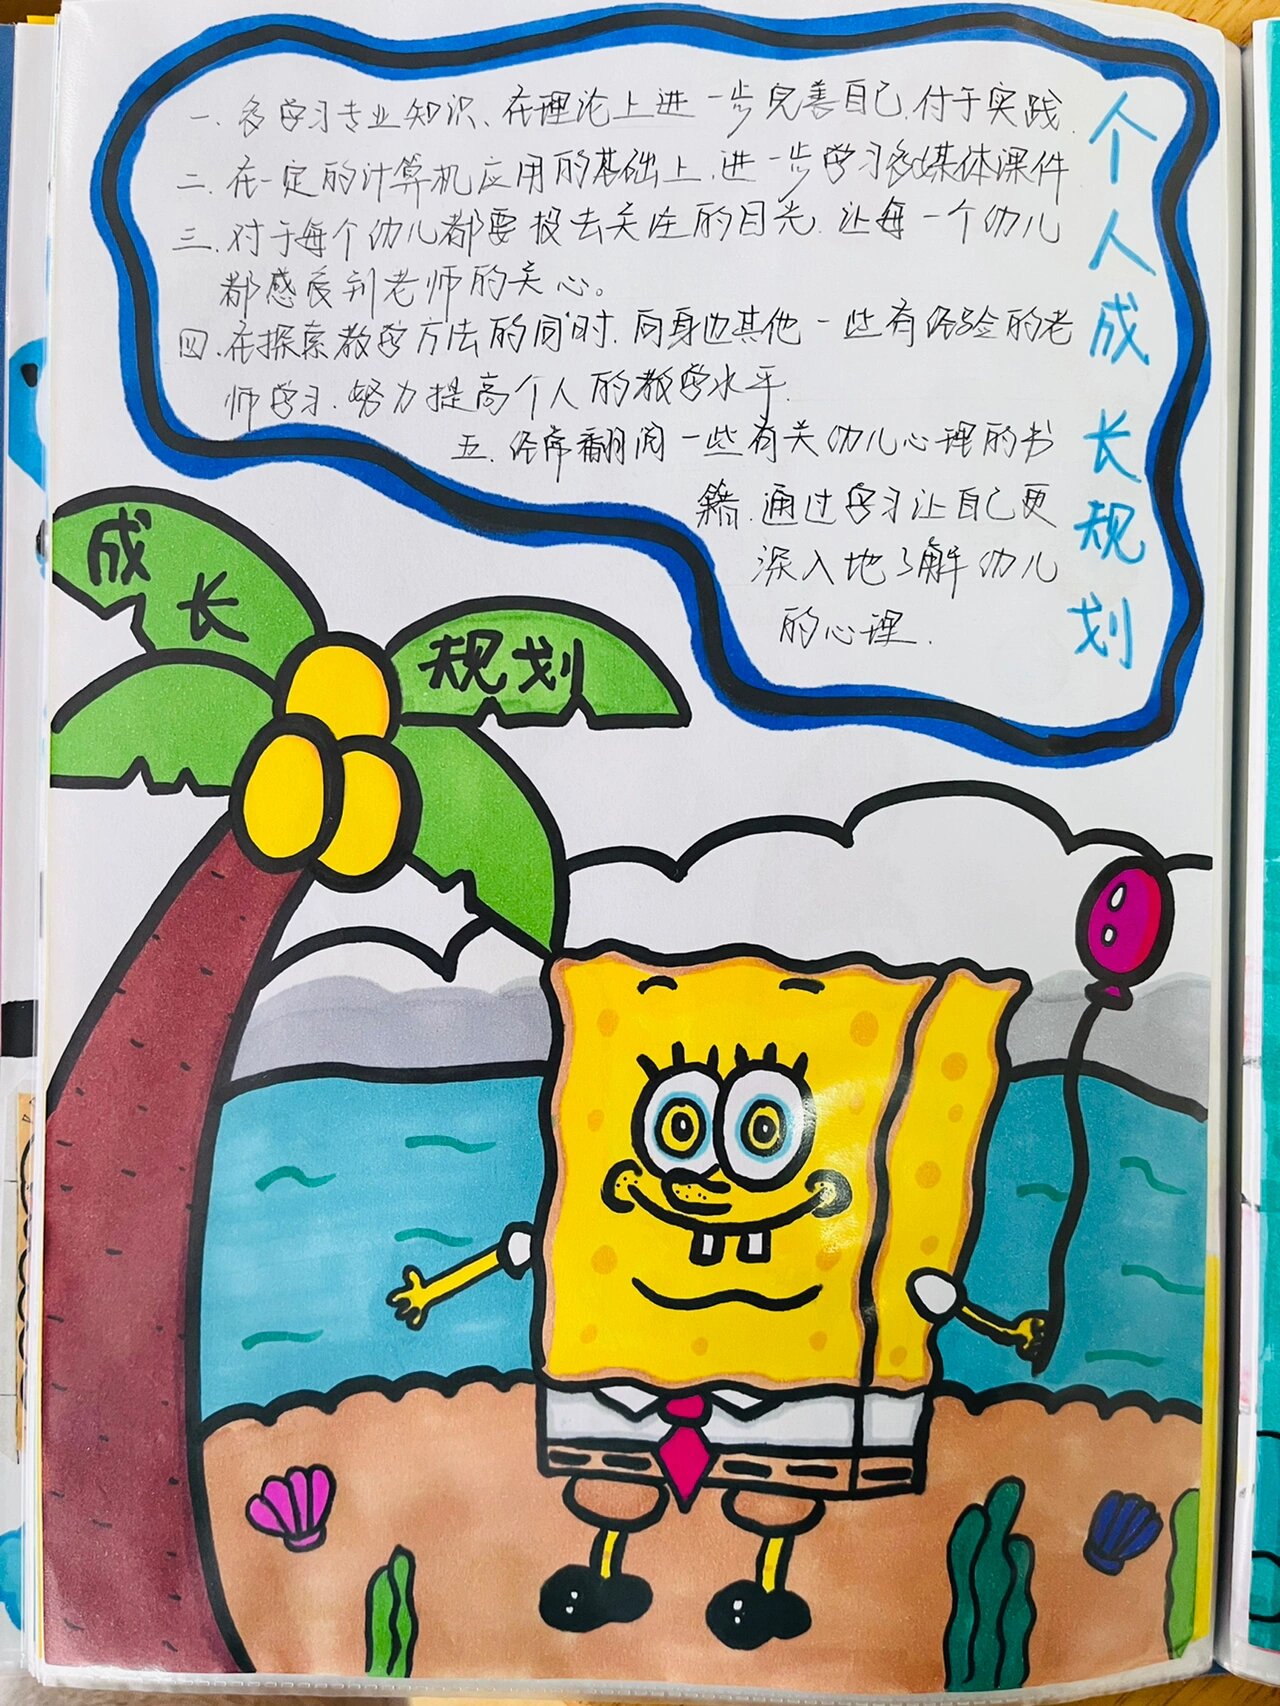 个人成长规划
一.多学习专业知识、在理论上进一步完善自己.付于实践.
二.在一定的计算机应用的基础上.进一步学习多媒体课件
三.对于每个幼儿都要投去关注的目光.让每一个幼儿
都感受到老师的关心。
四.在探索教学方法的同时.向身边其他一些有经验的老
师学习.努力提高个人的教学水平.
五.经常翻阅一些有关幼儿心理的书
籍.通过学习让自己更
深入地了解幼儿
的心理.
成长
规划